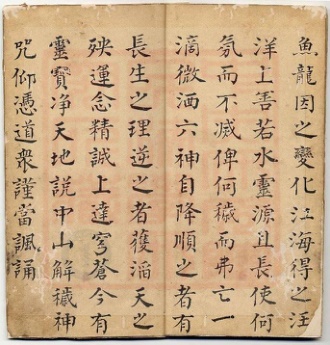 魚龍因之變化江海得之汪
洋上善若水靈源且長使何
氛而不滅俾何穢而弗亡一
滴微洒六神自降順之者有
長生之理逆之者獲滔天之
殃運念精誠上達穹蒼今有
靈寳净天地説中山解穢神
咒仰憑道衆謹當諷誦